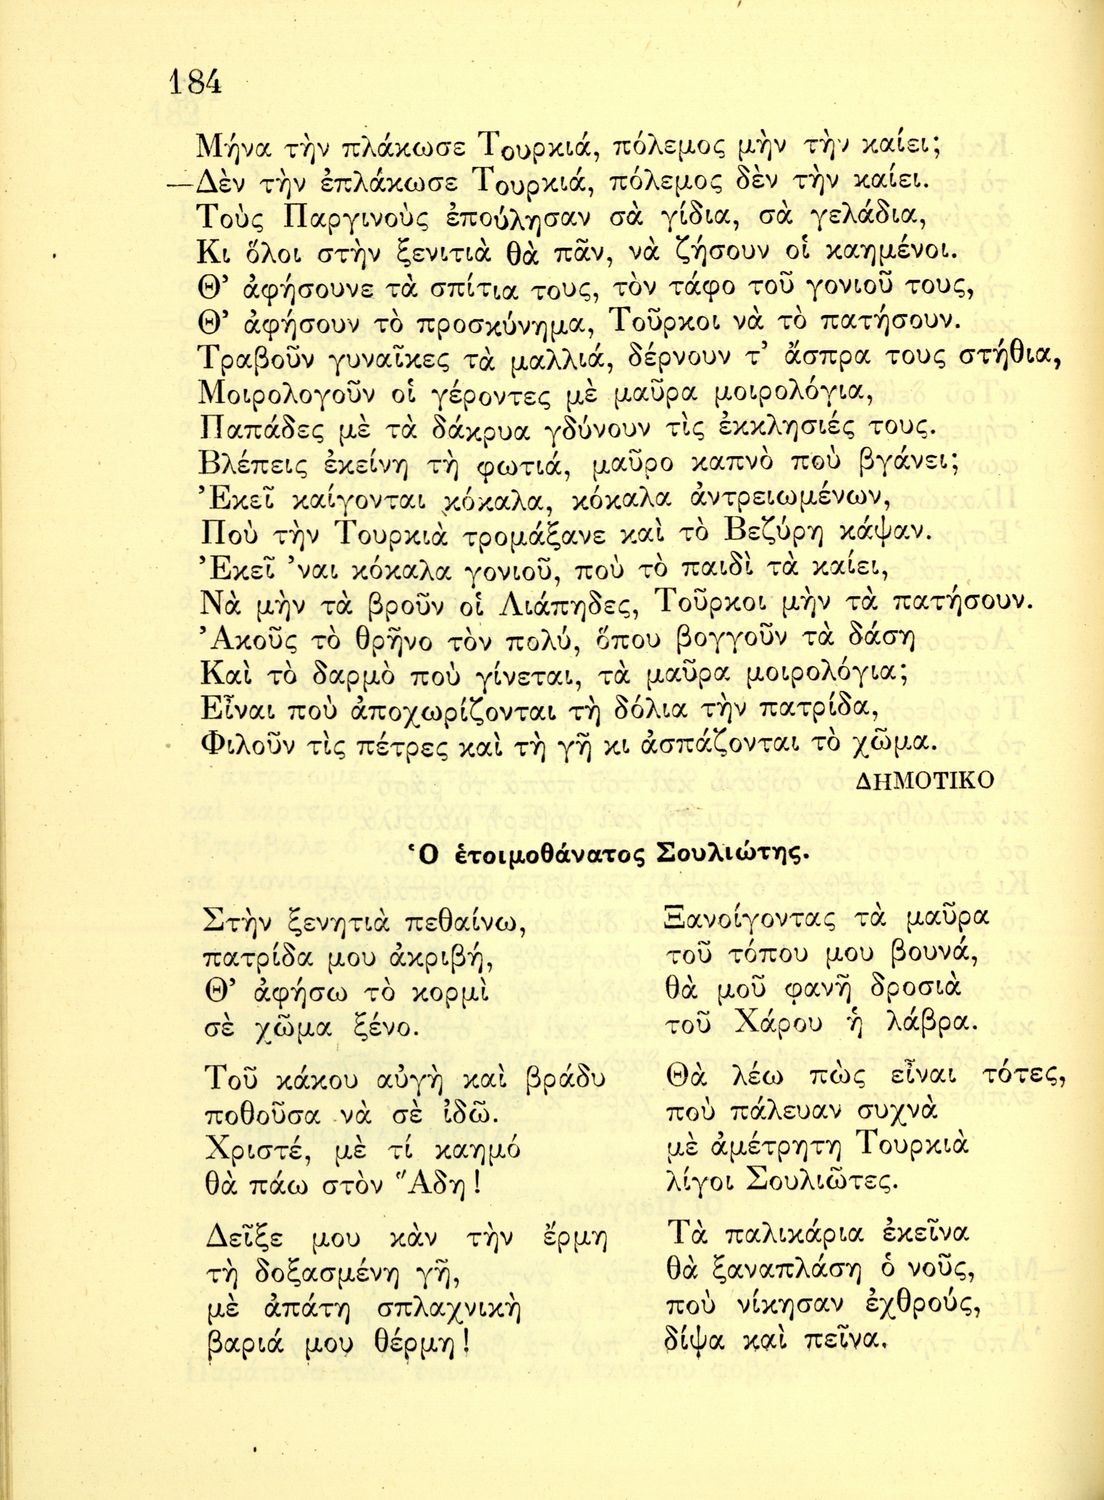 184
Μήνα τὴν πλάκωσε Τουρκιά, πόλεμος μὴν τὴν καίει;
—Δὲν τὴν ἐπλάκωσε Τουρκιά, πόλεμος δὲν τὴν καίει.
Τοὺς Παργινοὺς ἐπούλησαν σὰ γίδια, σὰ γελάδια,
Κι ὅλοι στὴν ξενιτιὰ θὰ πᾶν, νὰ ζήσουν οἱ καημένοι.
Θ’ ἀφήσουνε τὰ σπίτια τους, τὸν τάφο τοῦ γονιοῦ τους,
Θ’ ἀφήσουν τὸ προσκύνημα, Τοῦρκοι νὰ τὸ πατήσουν.
Τραβοῦν γυναῖκες τὰ μαλλιά, δέρνουν τ’ ἄσπρα τους στήθια,
Μοιρολογοῦν οἱ γέροντες μὲ μαῦρα μοιρολόγια,
Παπάδες μὲ τὰ δάκρυα γδύνουν τὶς ἐκκλησιές τους.
Βλέπεις ἐκείνη τὴ φωτιά, μαῦρο καπνὸ ποὺ βγάνει;
Ἐκεῖ καίγονται κόκαλα, κόκαλα ἀντρειωμένων,
Ποὺ τὴν Τουρκιὰ τρομάξανε καὶ τὸ Βεζύρη κάψαν.
Ἐκεῖ ’ναι κόκαλα γονιοῦ, ποὺ τὸ παιδὶ τὰ καίει,
Νὰ μὴν τὰ βροῦν οἱ Λιάπηδες, Τοῦρκοι μὴν τὰ πατήσουν.
Ἀκοῦς τὸ θρῆνο τὸν πολύ, ὅπου βογγοῦν τὰ δάση
Καὶ τὸ δαρμὸ ποὺ γίνεται, τὰ μαῦρα μοιρολόγια;
Εἶναι ποὺ ἀποχωρίζονται τὴ δόλια τὴν πατρίδα,
Φιλοῦν τὶς πέτρες καὶ τὴ γῆ κι ἀσπάζονται τὸ χῶμα.
ΔΗΜΟΤΙΚΟ
Ὁ ἑτοιμοθάνατος Σουλιώτης.
Στὴν ξενητιὰ πεθαίνω,
πατρίδα μου ἀκριβή,
Θ’ ἀφήσω τὸ κορμὶ
σὲ χῶμα ξένο.
Τοῦ κάκου αὐγὴ καὶ βράδυ
ποθοῦσα νὰ σὲ ἰδῶ.
Χριστέ, μὲ τί καημό
θὰ πάω στὸν Ἅδη!
Δεῖξε μου κὰν τὴν ἔρμη
τὴ δοξασμένη γῆ,
μὲ ἀπάτη σπλαχνικὴ
βαριά μου θέρμη!
Ξανοίγοντας τὰ μαῦρα
τοῦ τόπου μου βουνά,
θὰ μοῦ φανῆ δροσιὰ
τοῦ Χάρου ἡ λάβρα.
Θὰ λέω πὼς εἶναι τότες,
ποὺ πάλευαν συχνὰ
μὲ ἀμέτρητη Τουρκιὰ
λίγοι Σουλιῶτες.
Τὰ παλικάρια ἐκεῖνα
θὰ ξαναπλάση ὁ νοῦς,
ποὺ νίκησαν ἐχθρούς,
δίψα καὶ πεῖνα.